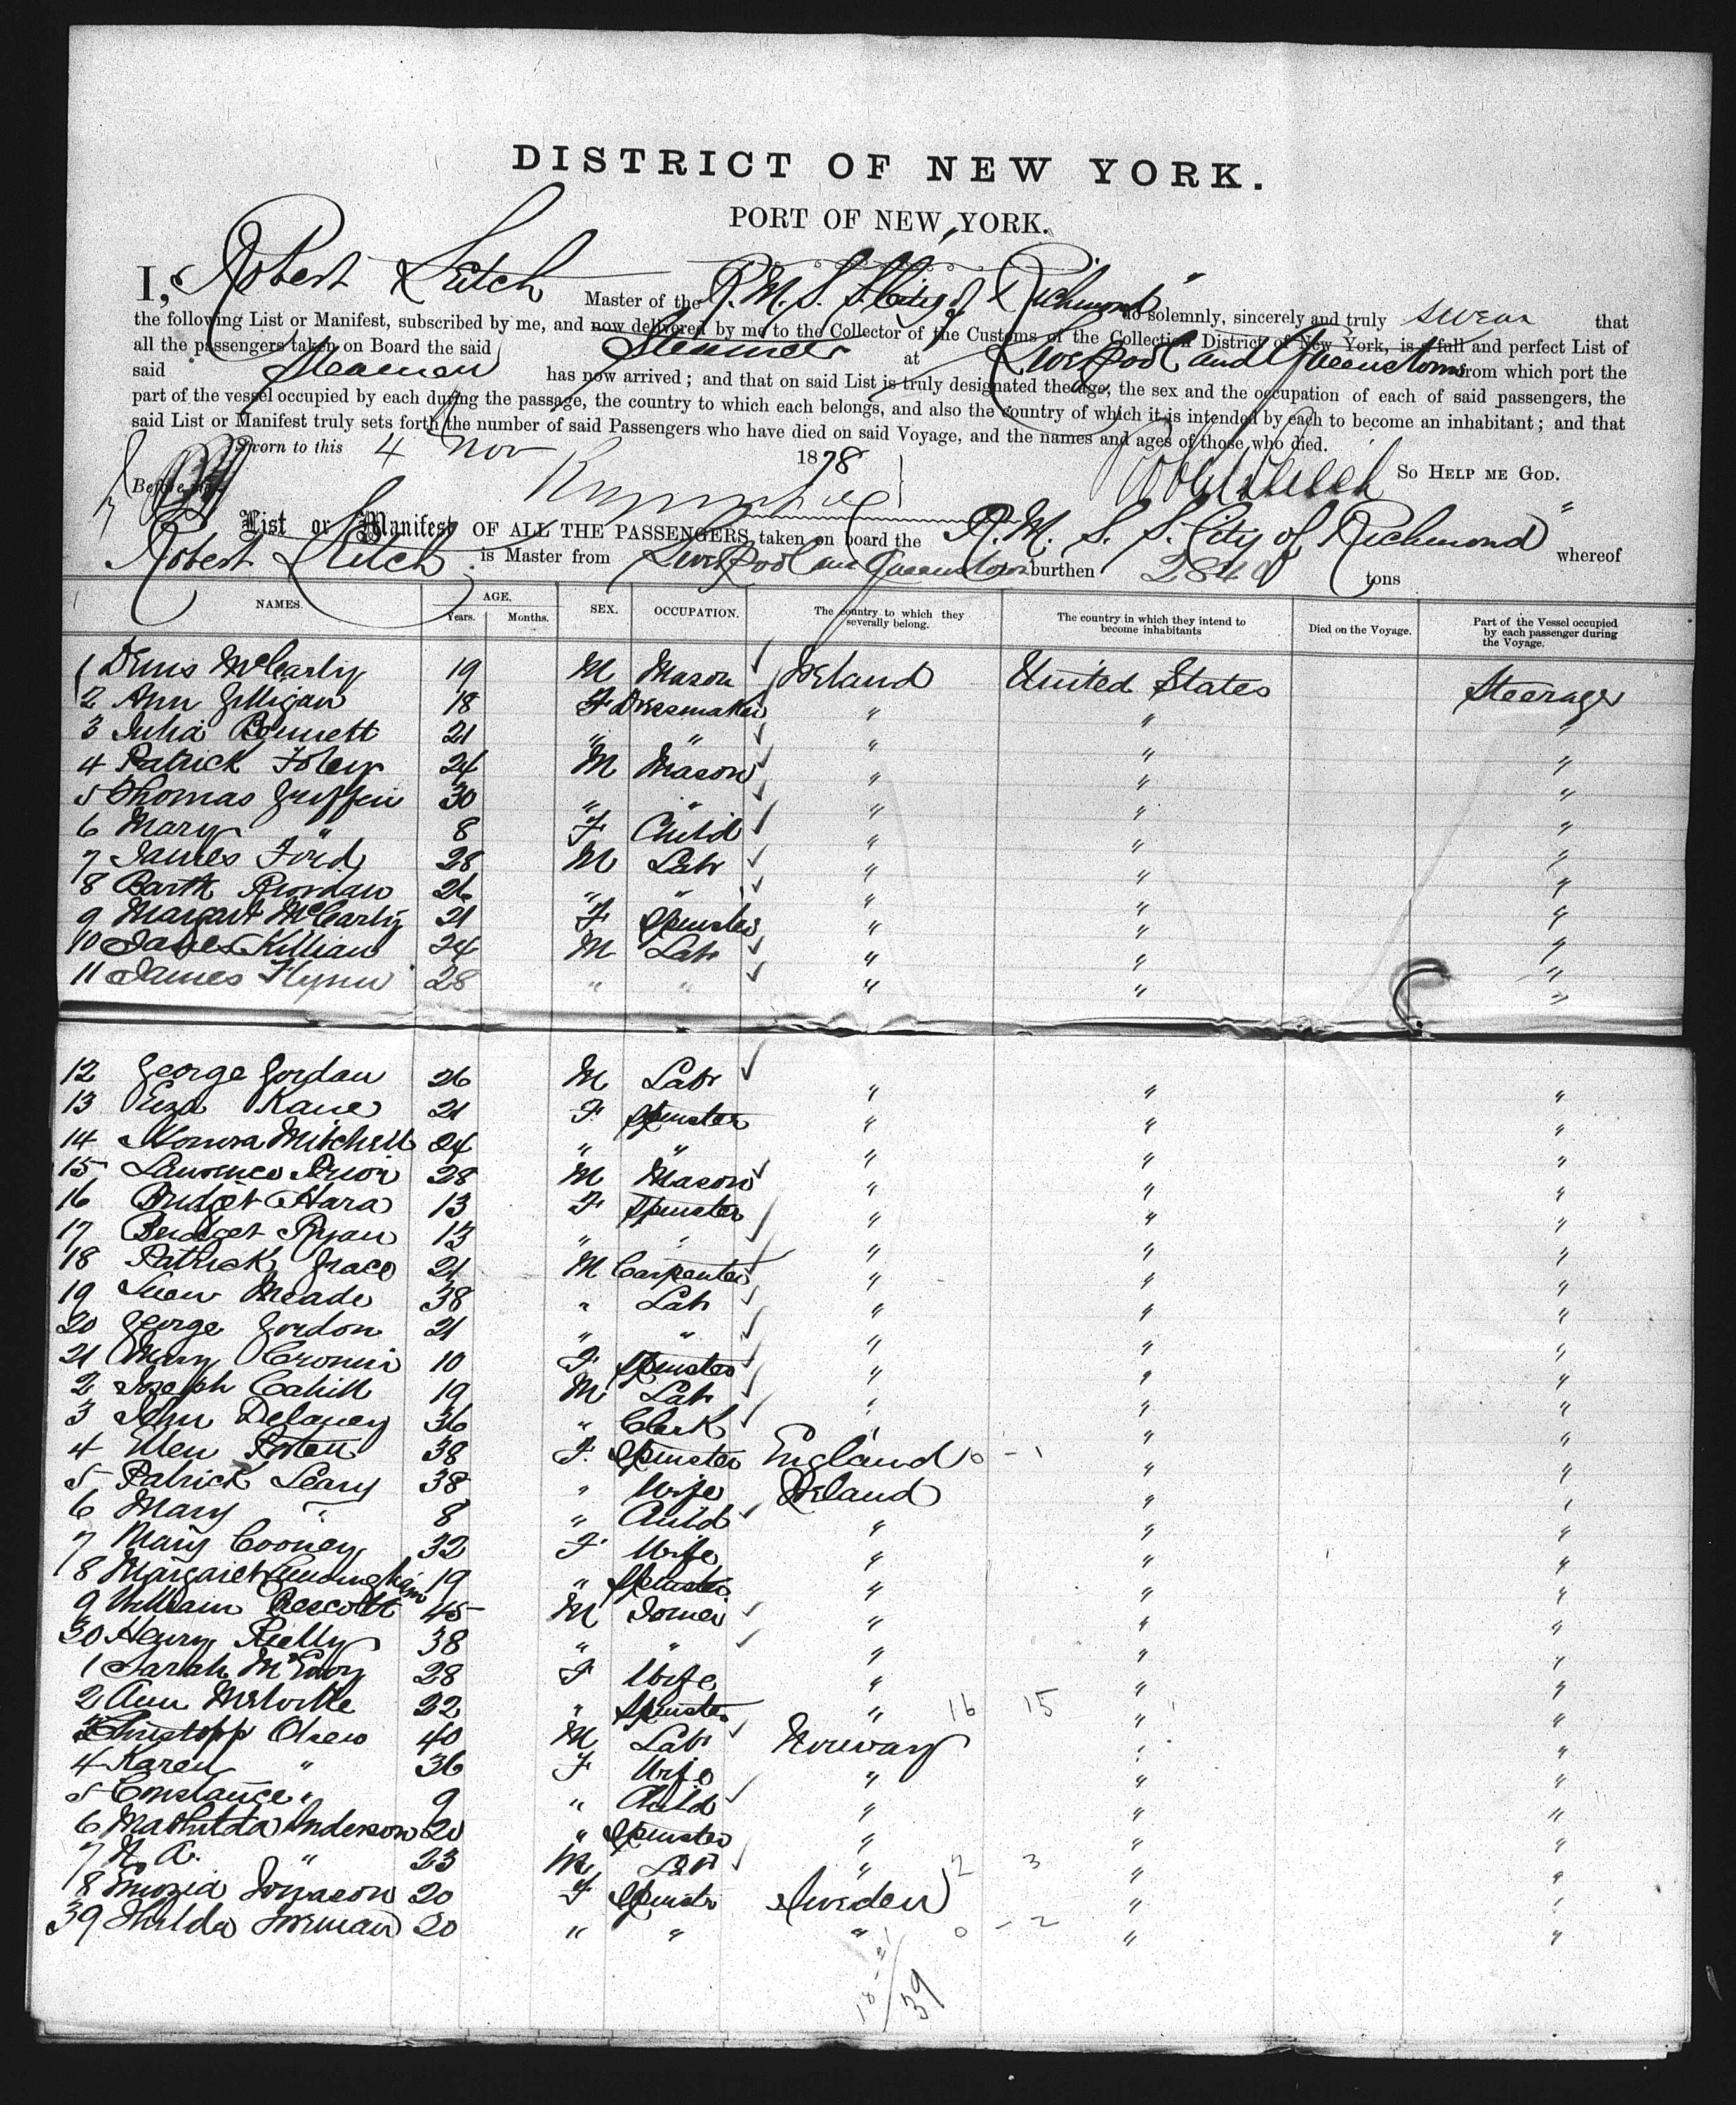 DISTRICT OF NEW YORK.
PORT OF NEW YORK.
I, Robert Leitch Master of the R. M. S. S. "City of Richmond" do solemnly, sincerely and truly swear that
the following List or Manifest, subscribed by me, and now delivered by me to the Collector of the Customs of the Collection District of New York, is a full and perfect List of
all the passengers taken on Board the said Steamer at Liverpool and Queenstown from which port the
said Steamer has now arrived; and that on said List is truly designated the age, the sex and the occupation of each of said passengers, the
part of the vessel occupied by each during the passage, the country to which each belongs, and also the country of which it is intended by each to become an inhabitant; and that
said List or Manifest truly sets forth the number of said Passengers who have died on said Voyage, and the names and ages of those who died.
Sworn to this 4 Nov 1878 So HELP ME GOD.
Before me
List or Manifest OF ALL THE PASSENGERS taken on board the R. M. S. S. City of Richmond" whereof
Robert Leitch is Master from Liverpool and Queenstown burthen tons
NAMES. AGE. SEX. OCCUPATION. The country to which they severally belong. The country in which they intend to become inhabitants Died on the Voyage. Part of the Vessel occupied by each passenger during the Voyage.
Years. Months.
1 Denis McCarty 19 M Mason Ireland United States Steerage
2 Ann Gilligan 18 F Dressmaker " " "
3 Julia Bennett 21 " " " " "
4 Patrick Foley 24 M Mason " " "
5 Thomas Griffin 30 " " " " "
6 Mary " 8 F Child " " "
7 James Ford 28 M Labr " " "
8 Barth Riordan 26 " " " " "
9 Margart McCarty 21 F Spinster " " "
10 James Killian 24 M Labr " " "
11 James Flynn 28 " " " " "
12 George Jordan 26 M Labr " " "
13 Eliza Kane 21 F Spinster " " "
14 Honora Mitchell 24 " " " " "
15 Lawrence Prior 28 M Mason " " "
16 Bridget Hara 13 F Spinster " " "
17 Bridget Ryan 13 " " " " "
18 Patrick Grace 21 M Carpenter " " "
19 Meade 38 " Labr " " "
20 George Gordon 21 " " " " "
21 Mary Cronin 10 F Spinster " " "
2 Joseph Cahill 19 M Labr " " "
3 John Delaney 36 " Clerk " " "
4 Ellen 38 F. Spinster England 0 - 1 " "
5 Patrick Leary 38 " Wife Ireland " "
6 Mary " 8 " Child " " "
7 Mary Cooney 32 F Wife " " "
8 Margaret Cunningham 19 " Spinster " " "
9 William Prescott 45 M Joiner " " "
30 Henry Reilly 38 " " " " "
1 Sarah McEvoy 28 F Wife " " "
2 Ann Melville 22 " Spinster " 16 15 " "
3 Christopp Olsen 40 M Labr Norway " "
4 Karen " 36 F Wife " " "
5 Constance " 9 " Child " " "
6 Mathilda Anderson 20 " Spinster " " "
7 N. A. " 23 M Labr " 2 3 " "
8 Jonason 20 F Spinstr Sweden " "
39 Hilda 20 " " " 0 - 2 " "
18 - 21
39